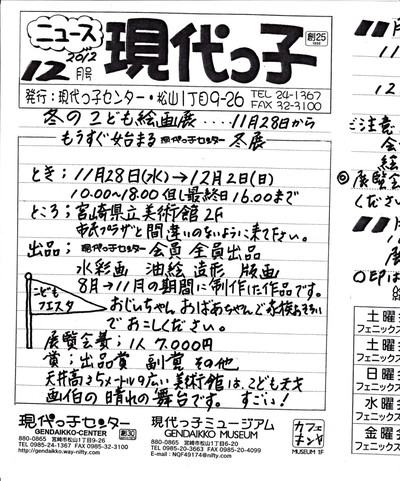 ニュース
2012
12月号
現代っ子
創25
発行:現代っ子センター・松山1丁目9-26
TEL 24-1367
FAX 32-3100
冬のこども絵画展....11月28日から
もうすぐ始まる現代っ子センター冬展
とき;11月28日(水)→12月2日(日)
10.00~18.00但し最終日16.00まで
ところ;宮崎県立美術館2F
市民プラザと間違いのないように来て下さい。
出品;現代っ子センター会員全員出品
水彩画 油絵 造形 版画
8月→11月の期間に制作した作品です。
こどもフエスタ
おじいちゃん おばあちゃんご家族おそろい
でおこしください。
展覧会費;1人7.000円
賞;出品賞 副賞その他
天井高さ5メートルの広い美術館は、こども天才
画伯の晴れの舞台です。 すごい!
現代っ子センター
GENDAIKKO-CENTER
創30
880-0865 宮崎市松山1丁目9-26
TEL 0985-24-1367 FAX 0985-32-3100
http://gendaikko.way-nifty.com/
現代っ子ミュージアム
GENDAIKKO MUSEUM
880-0865 宮崎市松山1丁目6-20
TEL 0985-20-4000 FAX 0985-20-4099
E-mail:NQF49174@nifty.com
カフェ
MUSEUM 1F
11
12
ご注意
会
絵
◎展覧会
ください
11月
展
OEPは
土曜
フェニックス
土曜
フェニックス
日曜
フェニックス
水曜
フェニックス
金曜
フェニックス